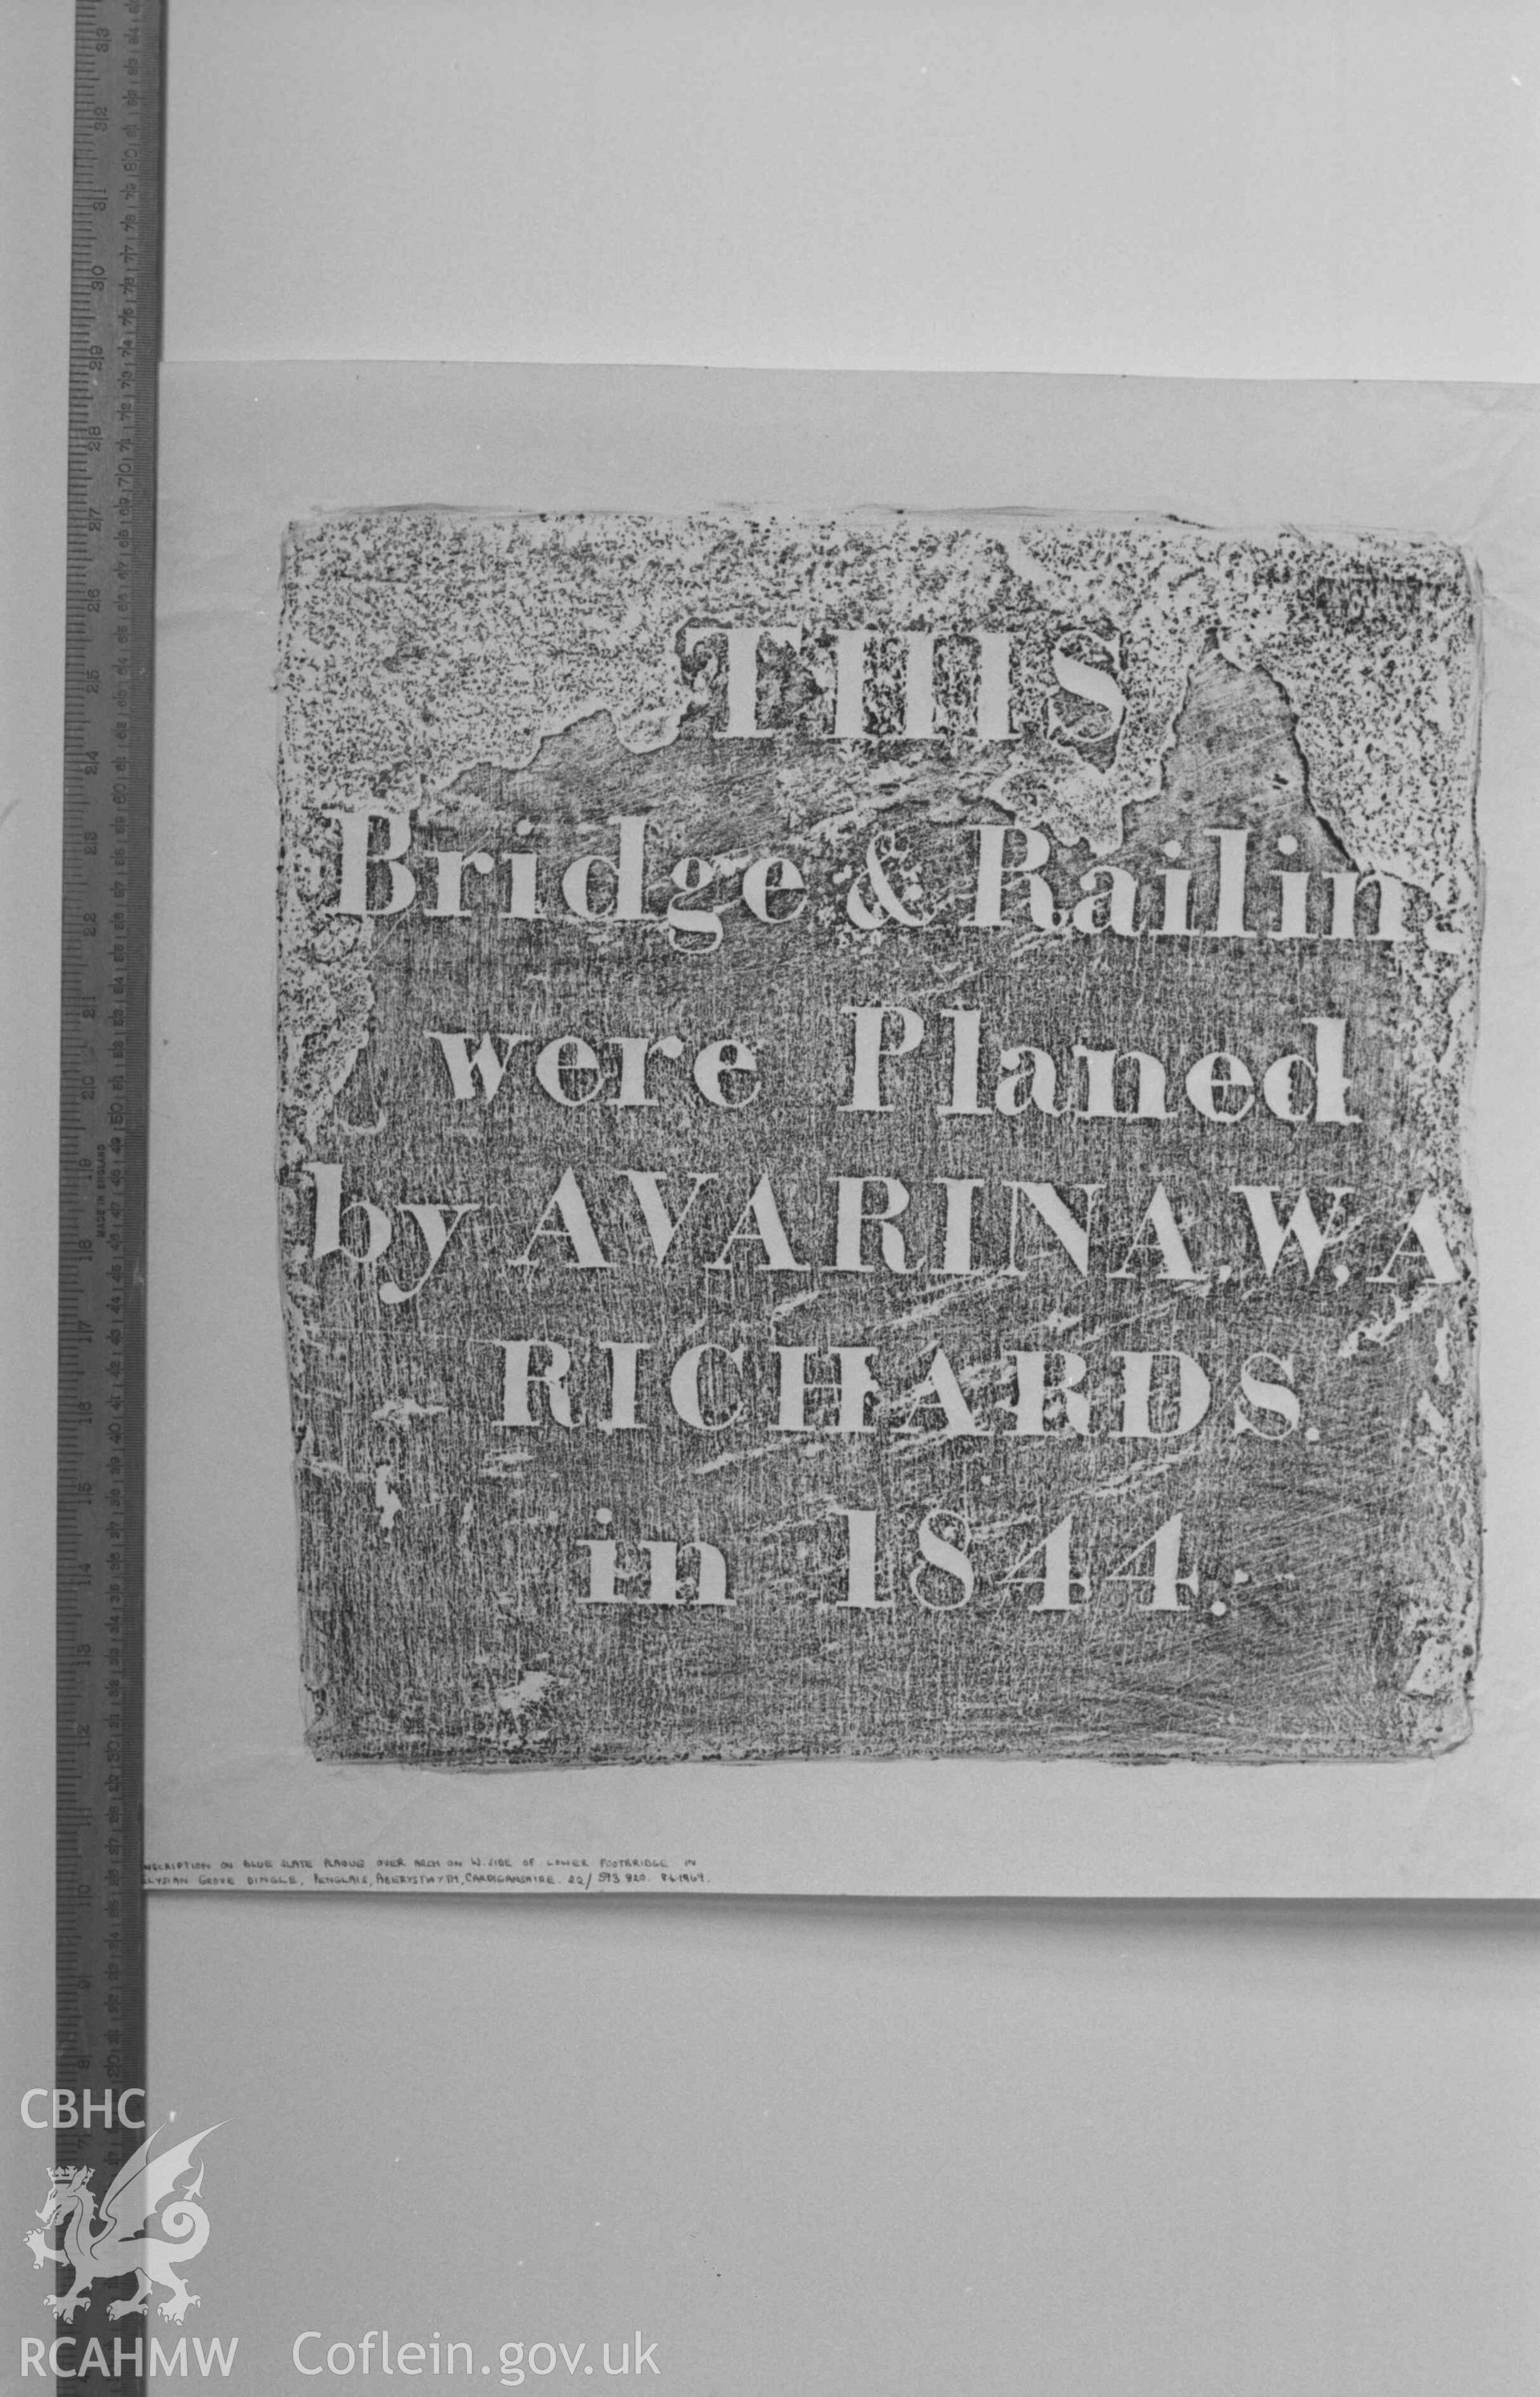 THIS
Bridge & Railing
were Planed
by AVARINA, W, A
RICHARDS.
in 1844.
INSCRIPTION ON BLUE SLATE PLAQUE OVER ARCH ON W. SIDE OF LOWER FOOTBRIDGE IN
ELYSIAN GROVE DINGLE, PENGLAIS, ABERYSTWYTH, CARDIGANSHIRE. 22/ 593 820.
MADE IN ENGLAND
CBHC
RCAHMW
Coflein.gov.uk